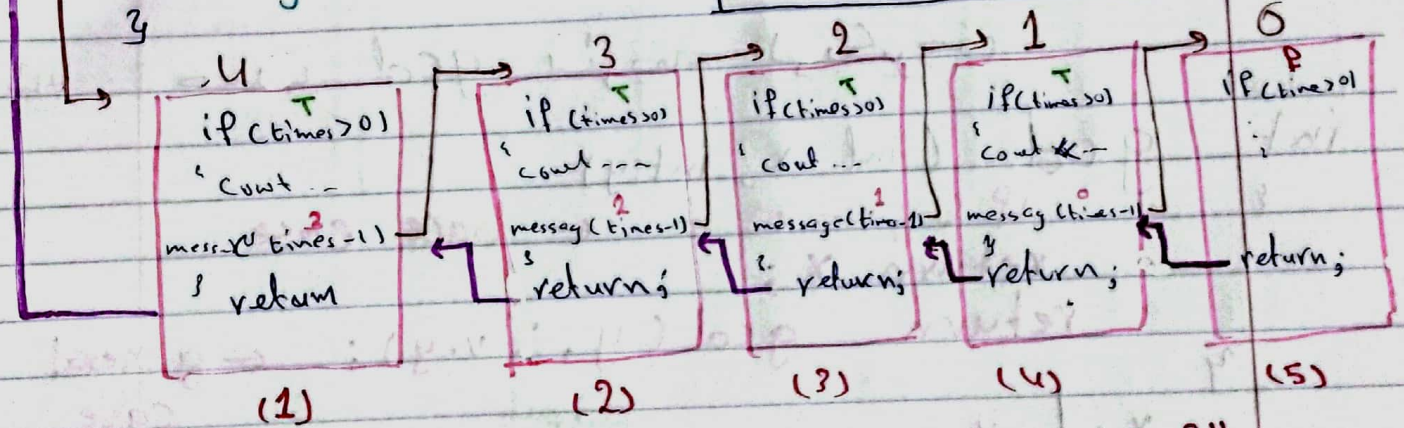 }
4
T
if (times>0)
{ cout ...
3
messag( times-1)
} return
(1)
3
T
if (times>0)
{ cout ---
2
messag (times-1)
} return;
(2)
2
T
if (times>0)
{ cout ...
1
message(time-1)
} return;
(3)
1
T
if (times>0)
{ cout <<--
0
messag (times-1)
} return;
(4)
0
F
if (time>0)
:
return;
(5)